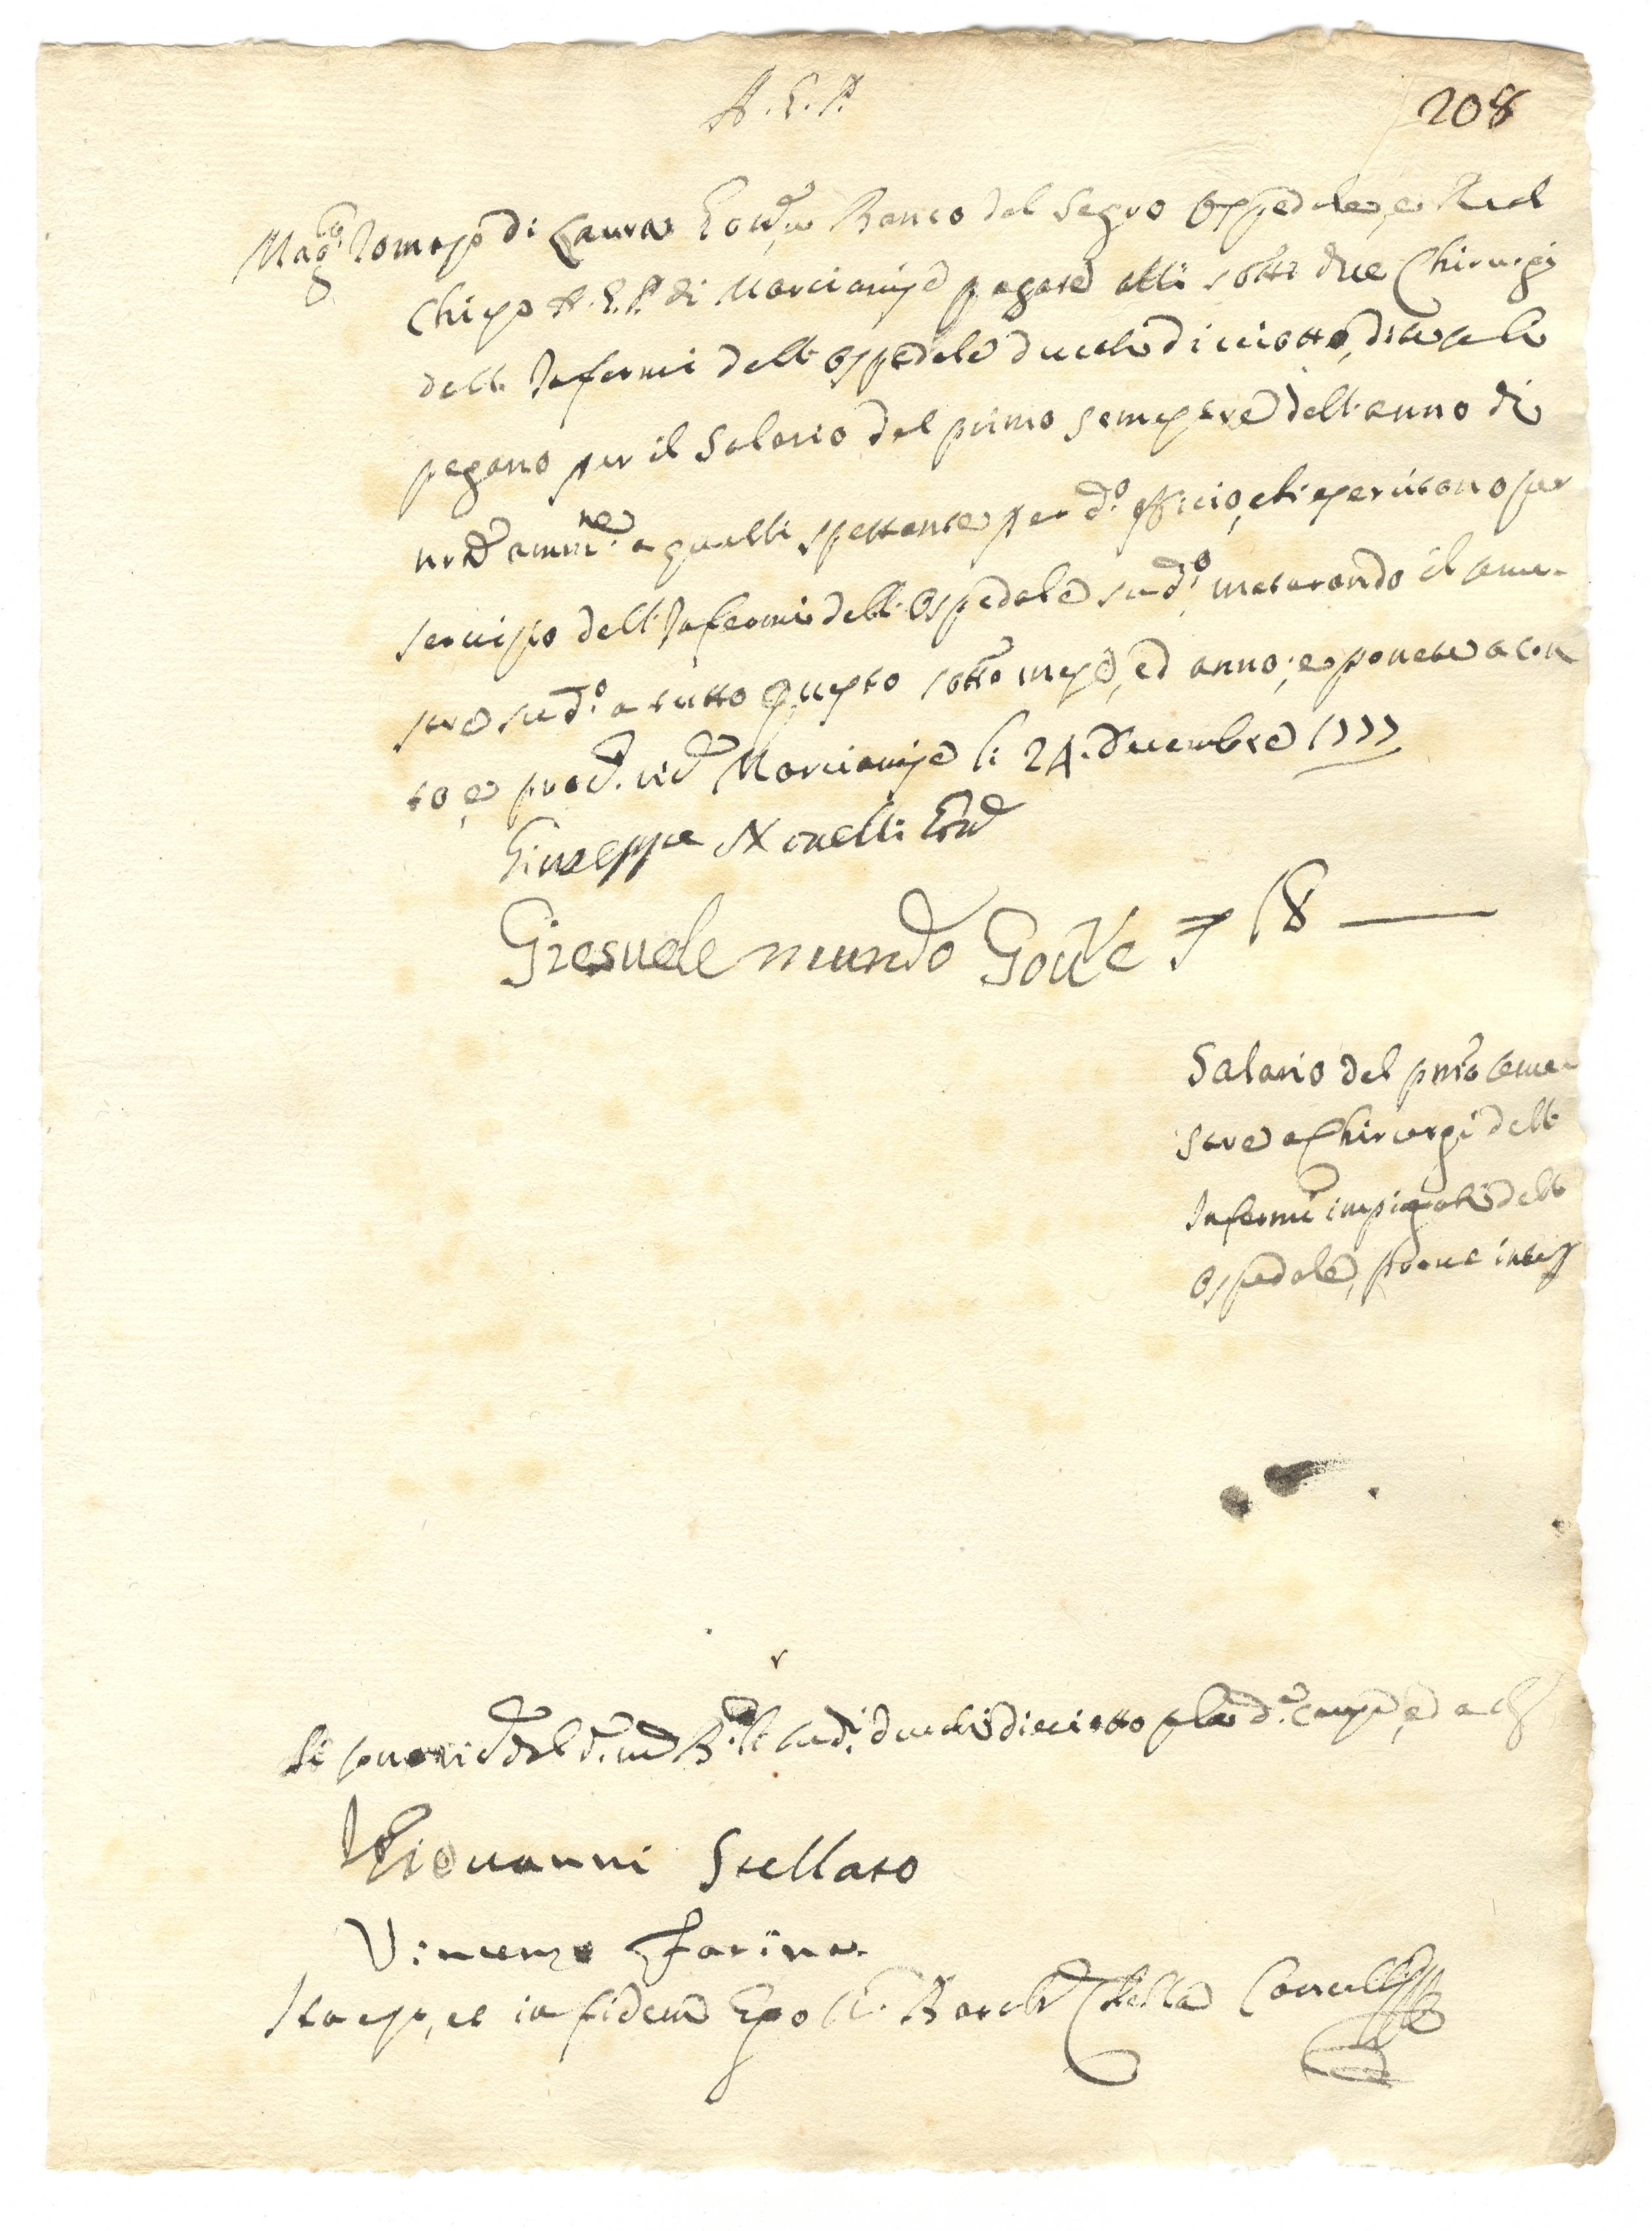 A. G. P.
208
Mag.co Tomaso di Laura Gov.re Banco del Segro Ospedale, e Real
Chiesa A. G. P. di Marcianise pagate alli sott.i due Chirurgi
dell' Infermi dell' Ospedale ducati dieciotto,
pagano per il Salario del primo semestre dell' anno di
a quelli spettante per d.o officio, ch' esercitano per
servizio dell' Infermi dell' Ospedale sud.o, maturando il seme-
stre sud.o a tutto questo sott.o mese, ed anno; e ponete a con
to, e Marcianise li 24. Decembre 1777
Giuseppe Novelli Gov.
Giesuele mundo Gov.re 18 —
Salario del p.mo seme-
stre a Chirurgi dell'
Infermi impiegati dell'
Ospedale,
sud.i ducati dieciotto per la d.a causa, ed a
Giovanni Stellato
Vincenzo Farina
Ita est, et in fidem Ego Stella